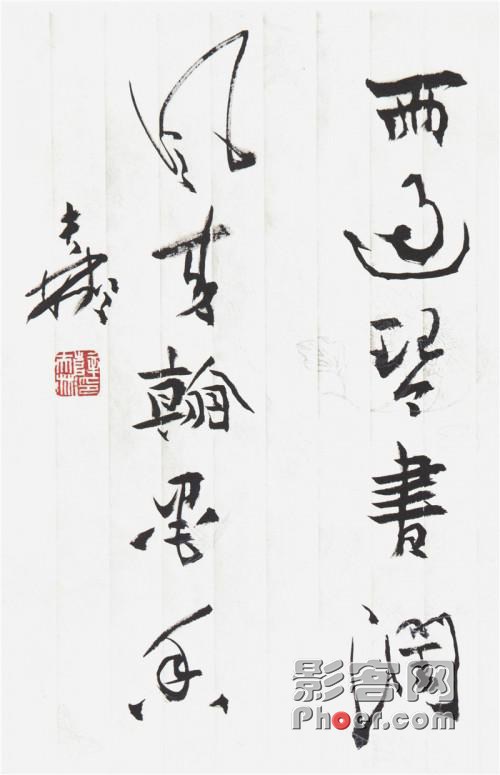 雨過琴書潤
風來翰墨香
影客网
Phoer.com